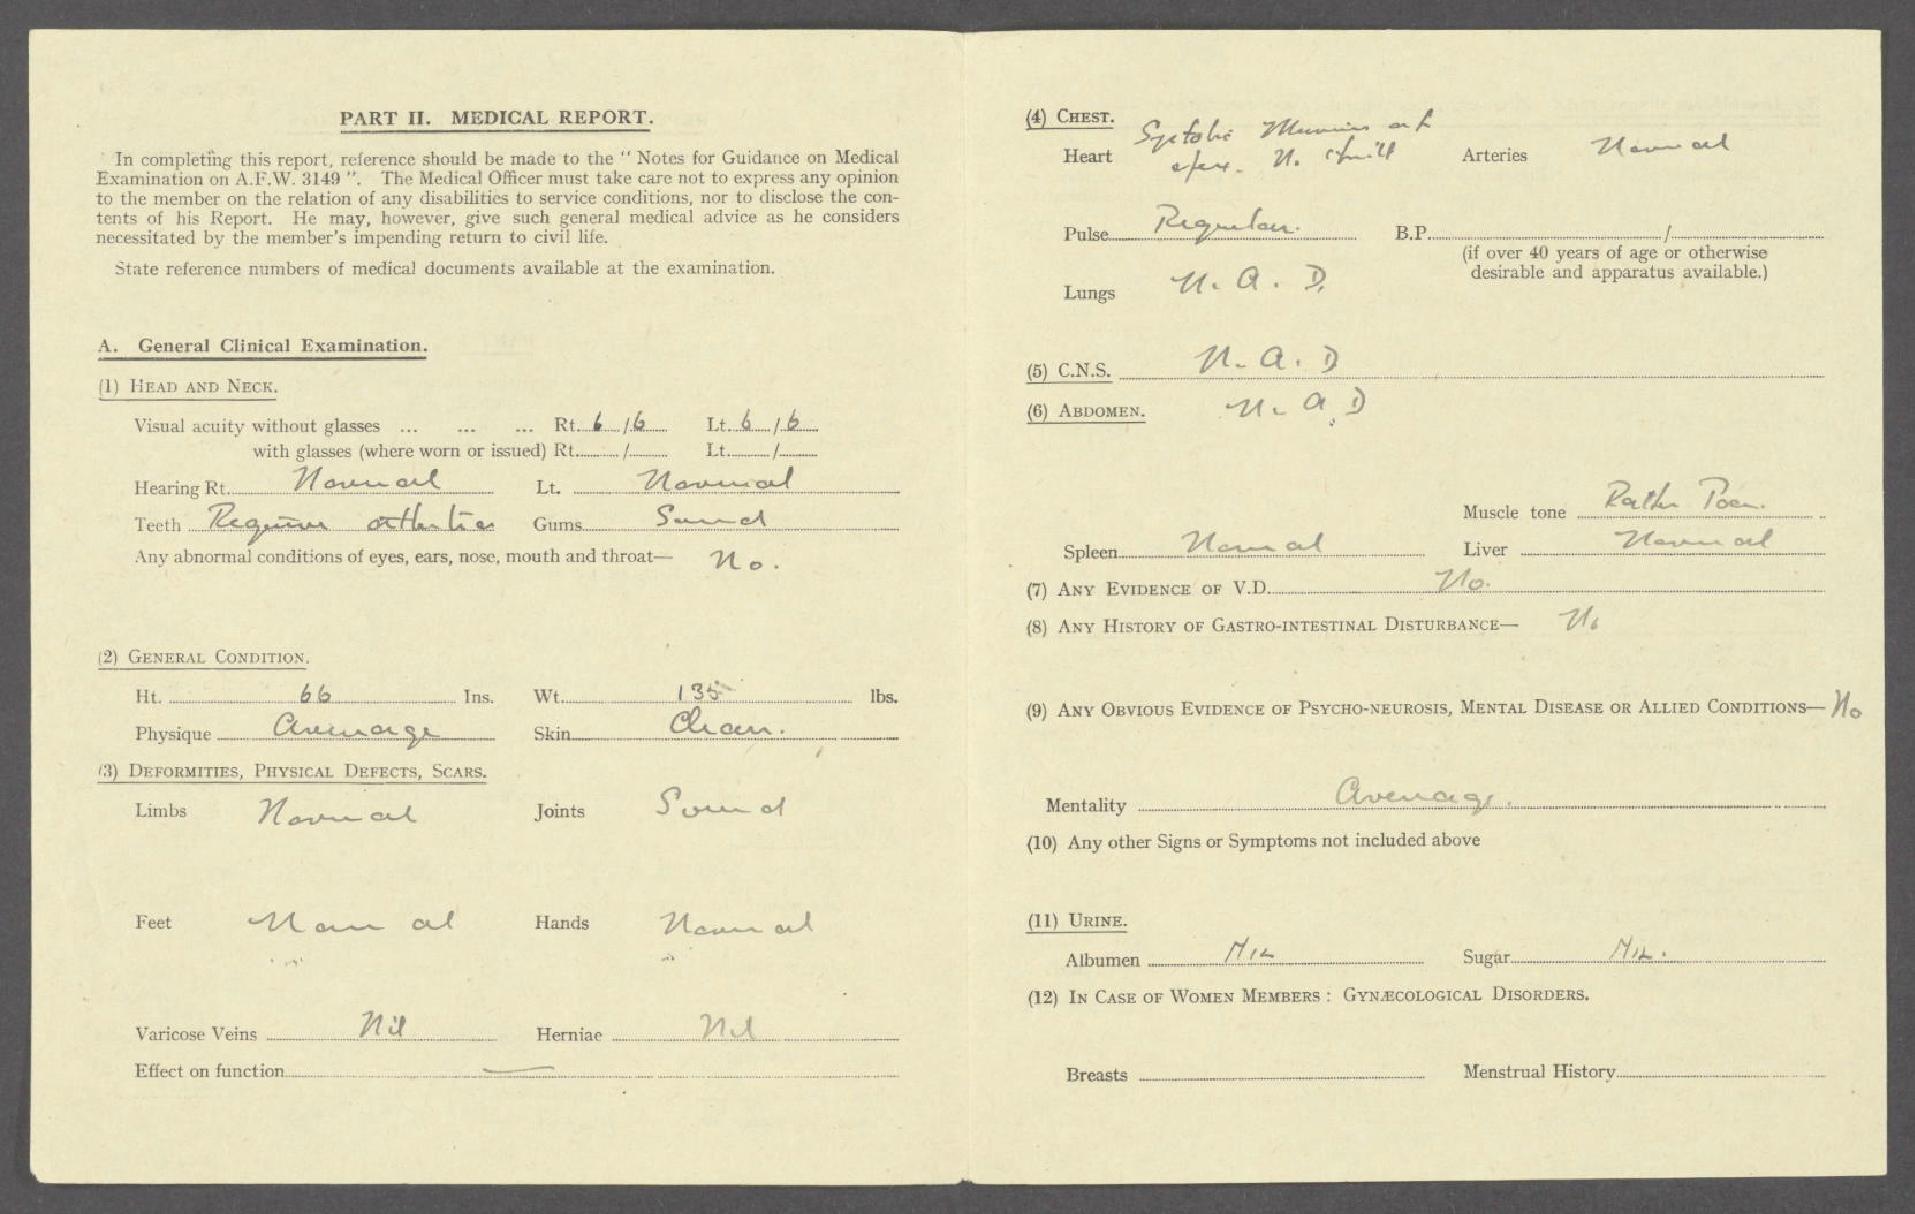 PART II. MEDICAL REPORT.
In completing this report, reference should be made to the " Notes for Guidance on Medical
Examination on A.F.W. 3149 ". The Medical Officer must take care not to express any opinion
to the member on the relation of any disabilities to service conditions, nor to disclose the con-
tents of his Report. He may, however, give such general medical advice as he considers
necessitated by the member's impending return to civil life.
State reference numbers of medical documents available at the examination.
A. General Clinical Examination.
(1) HEAD AND NECK.
Visual acuity without glasses ... ... ... Rt. 6 / 6 Lt. 6 / 6
with glasses (where worn or issued) Rt. / Lt. /
Hearing Rt. Normal Lt. Normal
Teeth Gums Sound
Any abnormal conditions of eyes, ears, nose, mouth and throat— No.
(2) GENERAL CONDITION.
Ht. 66 Ins. Wt. 135 lbs.
Physique Average Skin Clean.
(3) DEFORMITIES, PHYSICAL DEFECTS, SCARS.
Limbs Normal Joints Sound
Feet Normal Hands Normal
Varicose Veins Nil Herniae Nil
Effect on function —
(4) CHEST.
Heart Systolic Murmur at
apex. N. thrill Arteries Normal
Pulse Regular. B.P. /
(if over 40 years of age or otherwise
desirable and apparatus available.)
Lungs N.A.D.
(5) C.N.S. N.A.D
(6) ABDOMEN. N.A.D
Muscle tone Rather Poor.
Spleen Normal Liver Normal
(7) ANY EVIDENCE OF V.D. No.
(8) ANY HISTORY OF GASTRO-INTESTINAL DISTURBANCE— No
(9) ANY OBVIOUS EVIDENCE OF PSYCHO-NEUROSIS, MENTAL DISEASE OR ALLIED CONDITIONS— No
Mentality Average.
(10) Any other Signs or Symptoms not included above
(11) URINE.
Albumen NIL Sugar NIL.
(12) IN CASE OF WOMEN MEMBERS : GYNÆCOLOGICAL DISORDERS.
Breasts Menstrual History